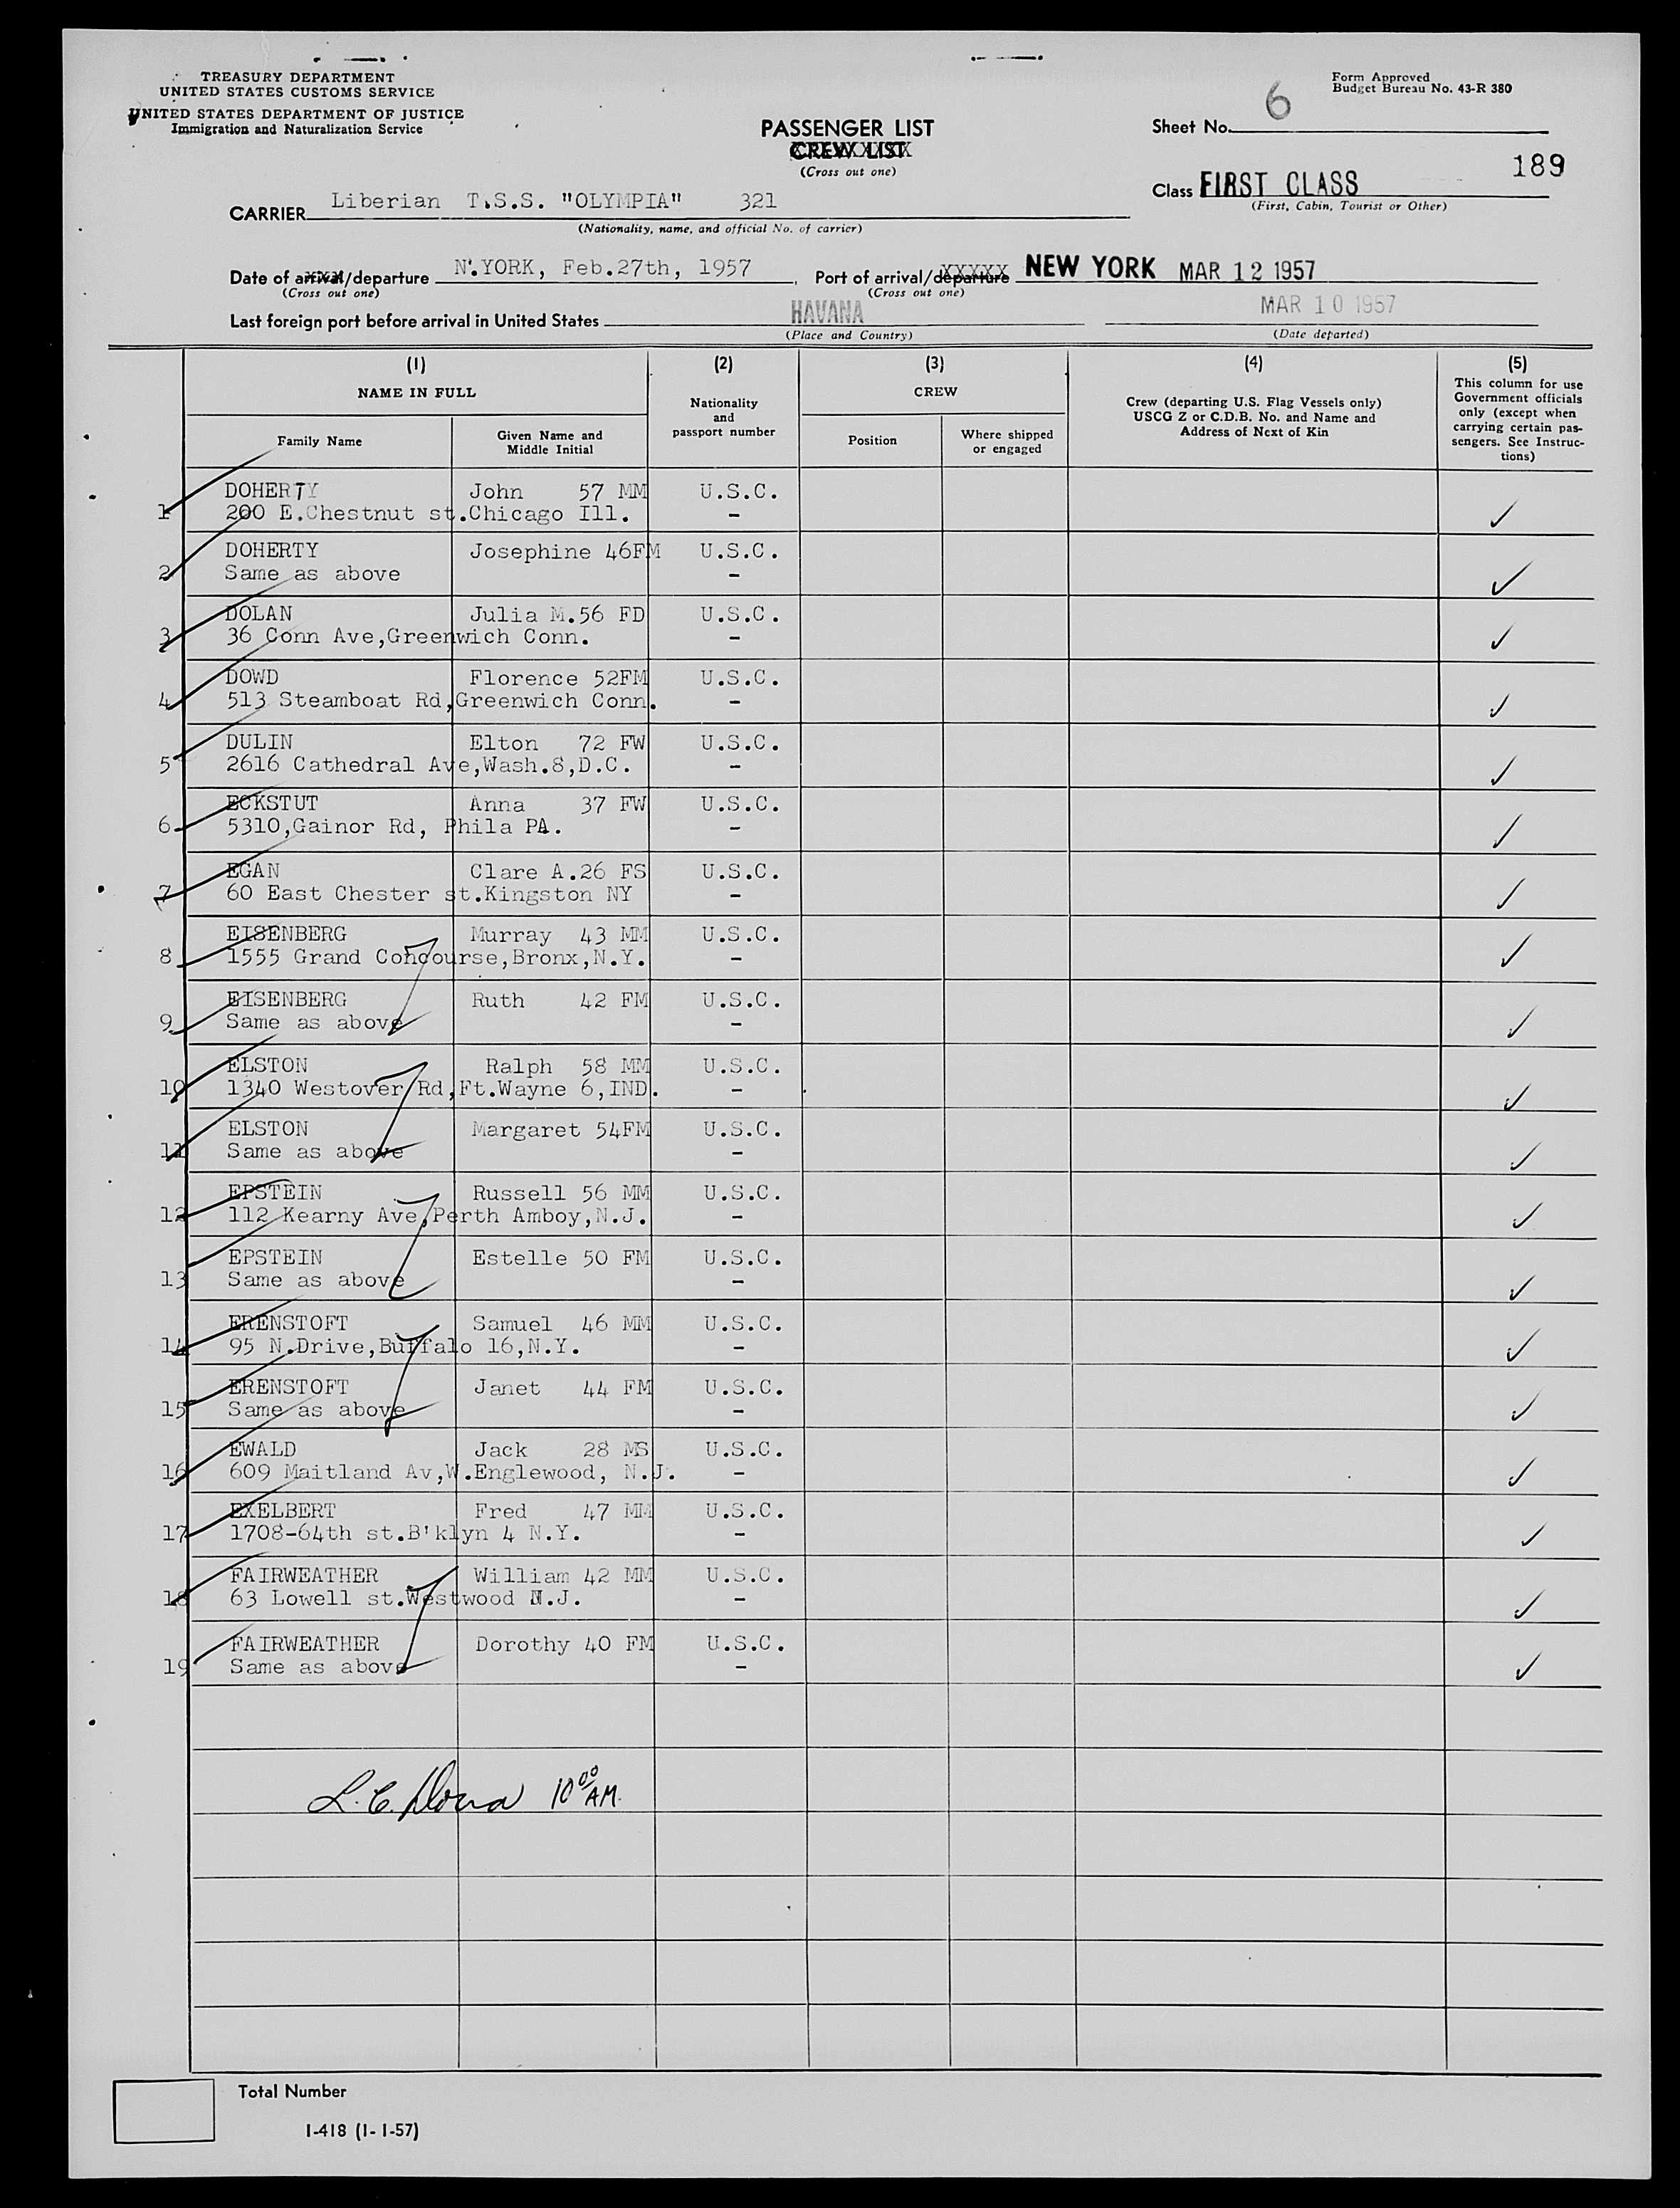 TREASURY DEPARTMENT
UNITED STATES CUSTOMS SERVICE
UNITED STATES DEPARTMENT OF JUSTICE
Immigration and Naturalization Service
Form Approved
Budget Bureau No. 43-R 380
PASSENGER LIST
CREW LIST
(Cross out one)
Sheet No. 6
189
Class FIRST CLASS
(First, Cabin, Tourist or Other)
CARRIER Liberian T.S.S. "OLYMPIA" 321
(Nationality, name, and official No. of carrier)
Date of arrival/departure N.YORK, Feb.27th, 1957 Port of arrival/departure NEW YORK MAR 12 1957
(Cross out one) (Cross out one)
Last foreign port before arrival in United States HAVANA MAR 10 1957
(Place and Country) (Date departed)
(1) (2) (3) (4) (5)
NAME IN FULL
Family Name
Given Name and Middle Initial
Nationality and passport number
CREW
Position
Where shipped or engaged
Crew (departing U.S. Flag Vessels only)
USCG Z or C.D.B. No. and Name and
Address of Next of Kin
This column for use
Government officials
only (except when
carrying certain pas-
sengers. See Instruc-
tions)
1 DOHERTY John 57 MM U.S.C.
200 E.Chestnut st.Chicago Ill. -
2 DOHERTY Josephine 46FM U.S.C.
Same as above -
3 DOLAN Julia M.56 FD U.S.C.
36 Conn Ave,Greenwich Conn. -
4 DOWD Florence 52FM U.S.C.
513 Steamboat Rd,Greenwich Conn. -
5 DULIN Elton 72 FW U.S.C.
2616 Cathedral Ave,Wash.8,D.C. -
6 ECKSTUT Anna 37 FW U.S.C.
5310,Gainor Rd, Phila PA. -
7 EGAN Clare A.26 FS U.S.C.
60 East Chester st.Kingston NY -
8 EISENBERG Murray 43 MM U.S.C.
1555 Grand Concourse,Bronx,N.Y. -
9 EISENBERG Ruth 42 FM U.S.C.
Same as above -
10 ELSTON Ralph 58 MM U.S.C.
1340 Westover Rd,Ft.Wayne 6,IND. -
11 ELSTON Margaret 54FM U.S.C.
Same as above -
12 EPSTEIN Russell 56 MM U.S.C.
112 Kearny Ave,Perth Amboy,N.J. -
13 EPSTEIN Estelle 50 FM U.S.C.
Same as above -
14 ERENSTOFT Samuel 46 MM U.S.C.
95 N.Drive,Buffalo 16,N.Y. -
15 ERENSTOFT Janet 44 FM U.S.C.
Same as above -
16 EWALD Jack 28 MS U.S.C.
609 Maitland Av,W.Englewood, N.J. -
17 EXELBERT Fred 47 MM U.S.C.
1708-64th st.B'klyn 4 N.Y. -
18 FAIRWEATHER William 42 MM U.S.C.
63 Lowell st.Westwood N.J. -
19 FAIRWEATHER Dorothy 40 FM U.S.C.
Same as above -
L. C. 10 00 AM.
Total Number
I-418 (1-1-57)